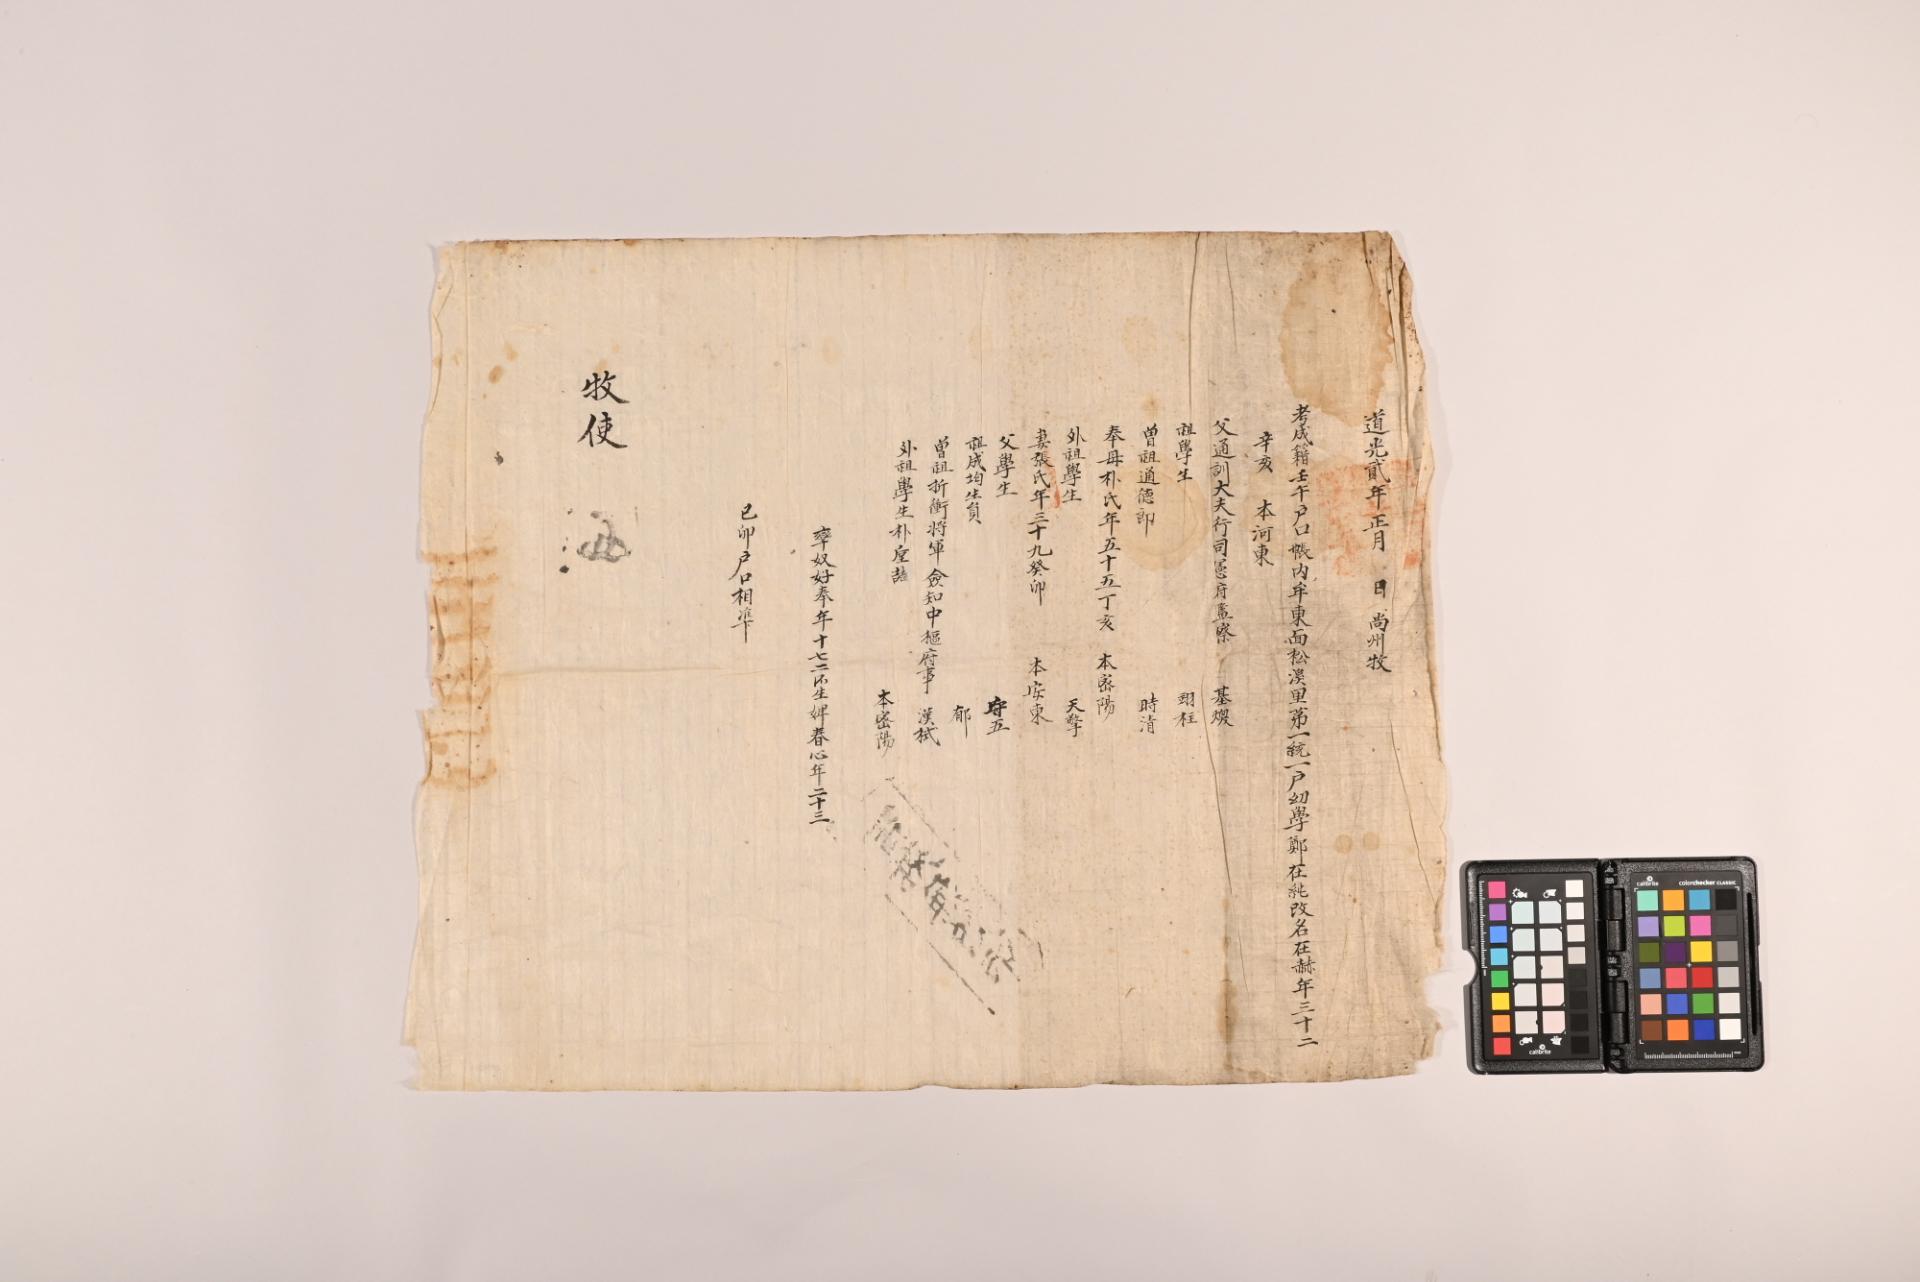 道光貳年正月 日 尚州牧
考成籍壬午戶口帳內牟東面松溪里第一統一戶幼學鄭在純改名在赫年三十二
辛亥 本河東
父通訓大夫行司憲府監察 基煥
祖學生 翊柱
曾祖通德郎 時清
奉母朴氏年五十五丁亥 本密陽
外祖學生 天擎
妻張氏年三十九癸卯 本安東
父學生 守五
祖成均生員 郁
曾祖折衝將軍僉知中樞府事 漢栻
外祖學生朴 本密陽
率奴好奉年十七二所生婢春心年二十三
己卯戶口相準
牧使
calibrite
calibrite
colorchecker CLASSIC